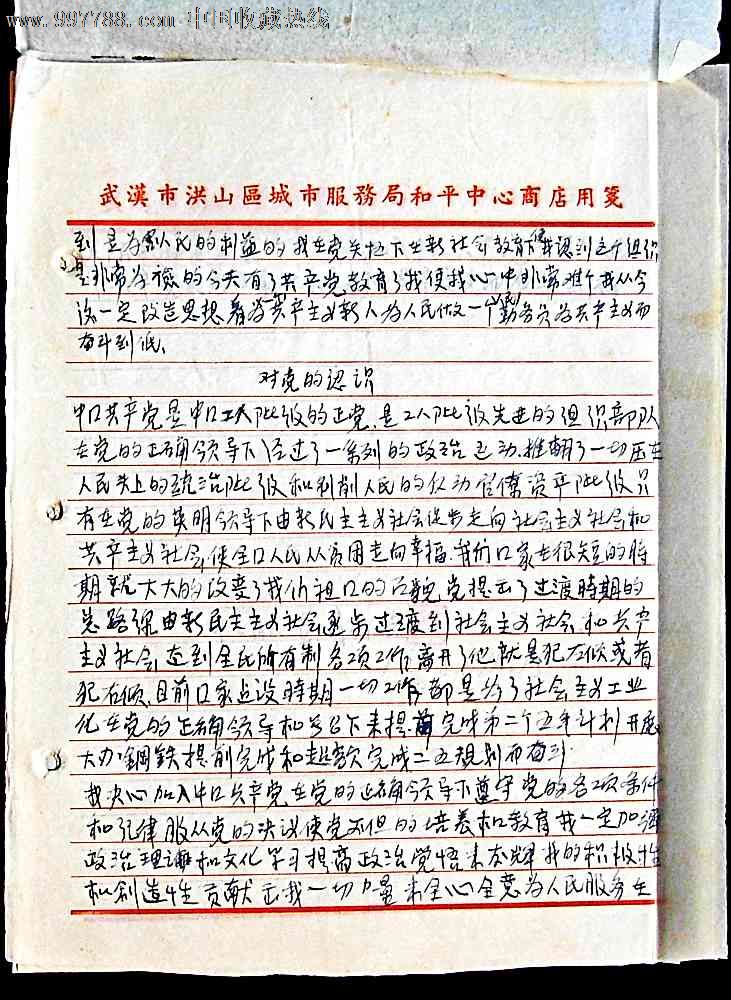 www.997788.com 中国收藏热线
武漢市洪山區城市服務局和平中心商店用箋
到是为人民的利益的我在党关怀下在新社会教育下使我認到这个组织
是非常为 的今天有了共产党教育了我使我心中非常难 我从今
后一定改造思想 为共产主义新人为人民做一个勤务员为共产主义而
奋斗到底、
对党的認识
中口共产党是中口工人阶级的正党、是工人阶级先进的组织部队
在党的正确領导下经过了一系列的政治运动、推翻了一切压在
人民头上的統治阶级和剥削人民的反动官僚资产阶级只
有在党的英明領导下由新民主主义社会逐步走向社会主义社会和
共产主义社会、使全口人民从贫困走向幸福、我们口家在很短的時
期就大大的改变了我们祖口的面貌党提出了过渡時期的
总路線由新民主主义社会逐步过渡到社会主义社会和共产
主义社会、达到全民所有制各項工作离开了他就是犯左倾或者
犯右倾、目前口家建设時期一切工作都是为了社会主义工业
化在党的正确領导和号召下来提前完成第二个五年计划开展
大办鋼鉄提前完成和超额完成二五規划而奋斗
我决心加入中口共产党在党的正确領导下遵守党的各項条件
和纪律服从党的决议使党不但的培养和教育我一定加强
政治理論和文化学习提高政治觉悟来发揮我的积极性
和創造性贡献出我一切力量来全心全意为人民服务在